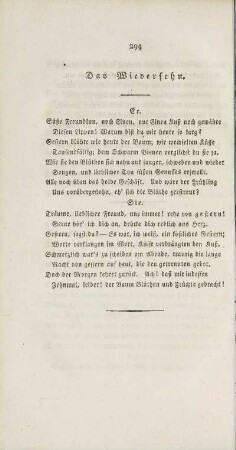 294
Das Wiedersehn.
Er.
Süße Freundinn, noch Einen, nur Einen Kuß noch gewähre
Diesen Lippen! Warum bist du mir heute so karg?
Gestern blühte wie heute der Baum, wir wechselten Küsse
Tausendfältig; dem Schwarm Bienen verglichst du sie ja,
Wie sie den Blüthen sich nahn und saugen, schweben und wieder
Saugen, und lieblicher Ton süßen Genusses erschallt.
Alle noch üben das holde Geschäft. Und wäre der Frühling
Uns vorübergeflohn, eh' sich die Blüthe zerstreut?
Sie.
Träume, lieblicher Freund, nur immer! rede von gestern!
Gerne hör' ich dich an, drücke dich redlich ans Herz.
Gestern, sagst du? — Es war, ich weiß, ein köstliches Gestern;
Worte verklangen im Wort, Küsse verdrängten den Kuß.
Schmerzlich war's zu scheiden am Abende, traurig die lange
Nacht von gestern auf heut, die den getrennten gebot.
Doch der Morgen kehret zurück. Ach! daß mir indessen
Zehnmal, leider! der Baum Blüthen und Früchte gebracht!